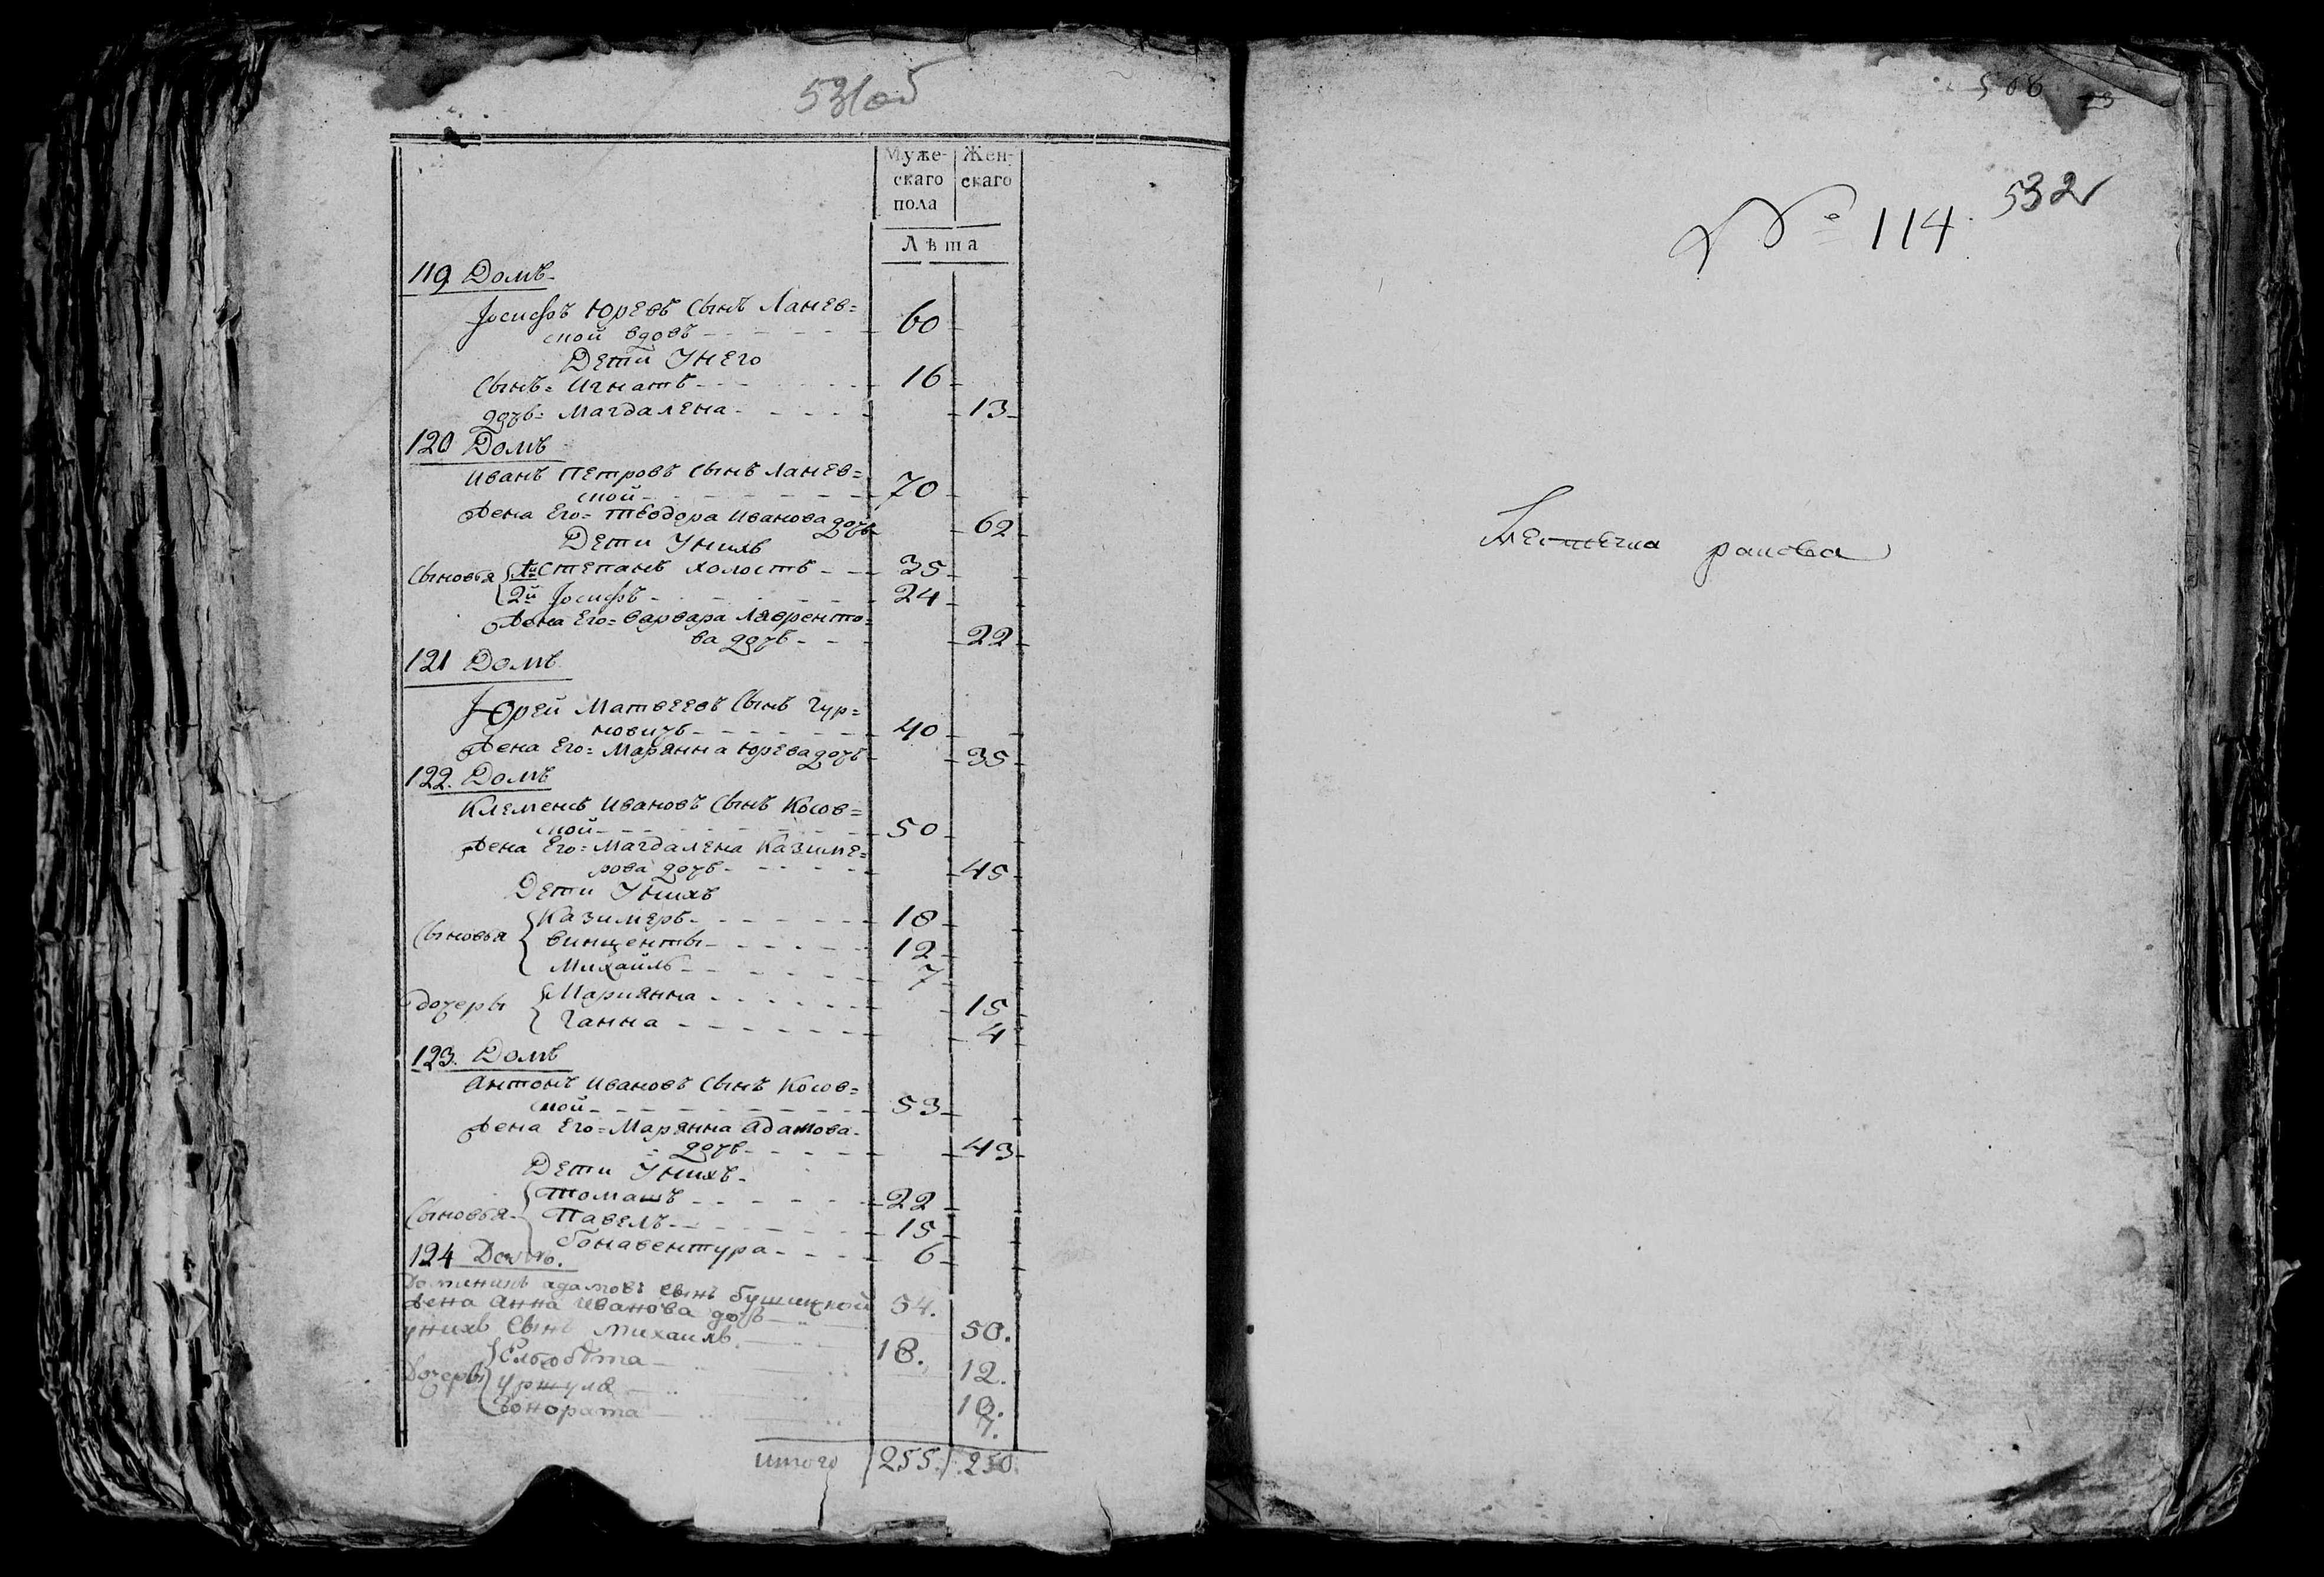 531об
Муже-
скаго
пола
Жен-
скаго
Лѣта
119 Домъ
Іосифъ Юревъ Сынъ Ланев=
ской вдовъ
60
Дети Унего
Сынъ= Игнатъ
16
дочь= Магдалена
13
120 Домъ
Иванъ Петровъ Сынъ Ланев=
ской
70
Жена Его= Теодора Иванова дочь
62
Дети Унихъ
Сыновья 1й Степанъ холостъ
35
2й Іосифъ
24
Жена Его= варвара Лаврентьо=
ва дочь
22
121 Домъ
Юрей Матвеевъ Сынъ Гур=
новичъ
40
Жена Его= Марянна Юрева дочь
35
122. Домъ
Клеменсъ Ивановъ Сынъ Косов=
ской
50
Жена Его= Магдалена Казиме=
рова дочь
45
Дети Унихъ
Сыновья
Казимеръ
18
винцентъ
12
Михаилъ
7
дочеры
Марианна
15
Ганна
4
123. Домъ
Антонъ Ивановъ Сынъ Косов=
ской
53
Жена Его= Марянна Адамова
дочь
43
Дети Унихъ
Сыновья
Томашъ
22
Павелъ
15
бонавентура
6
124 Домъ.
Доминикъ адамовъ сынъ бушицкой
54.
Жена Анна Иванова дочь
50.
унихъ Сынъ михаилъ
18.
Дочеры
Елсбѣта
12.
уршуля
10.
Гонората
7.
итого 255. 250.
508
532
№ 114.